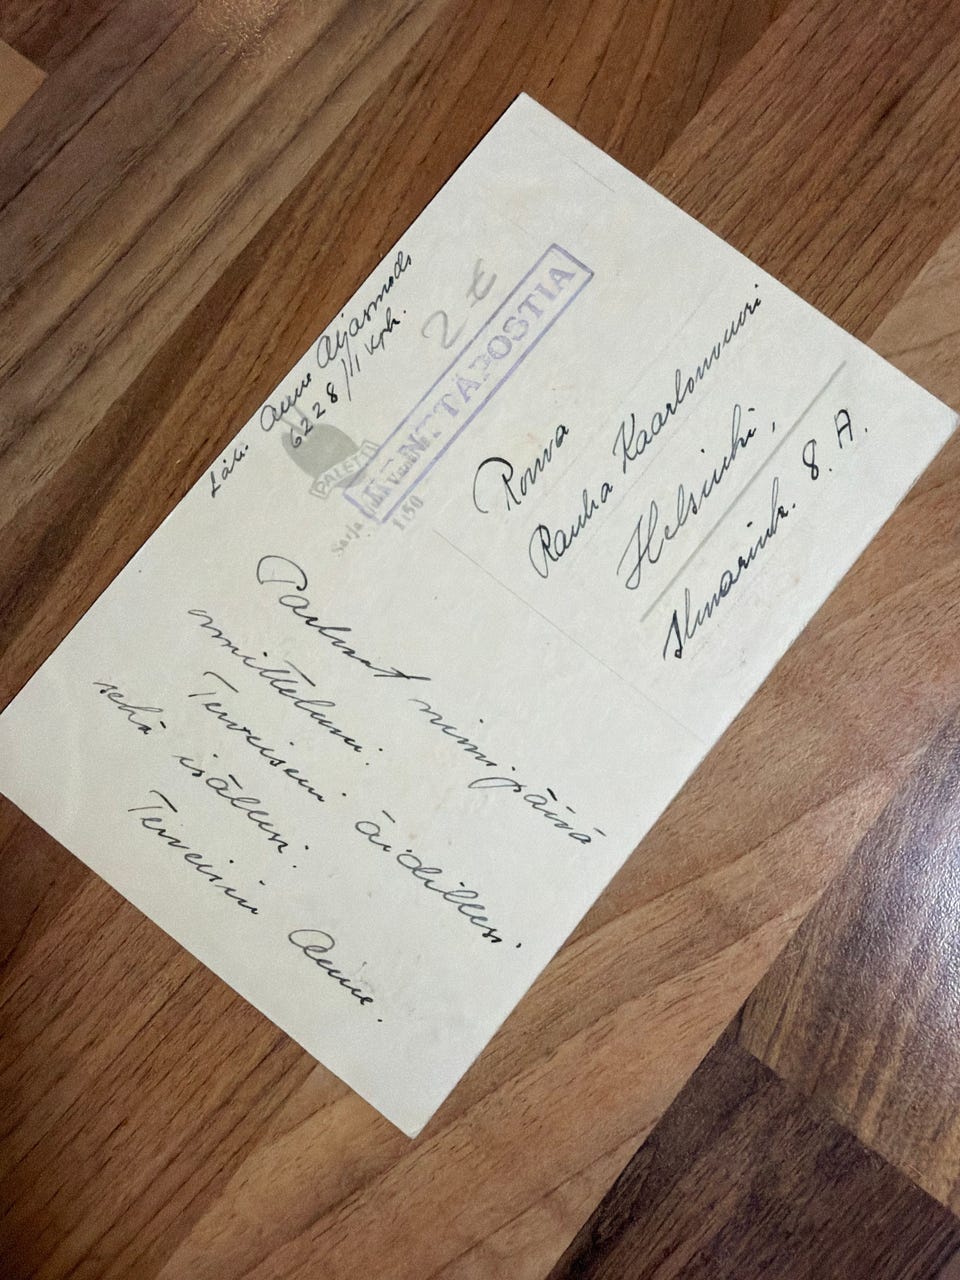 Läh. Anne
6228/11 Kph.
2 €
KENTTÄPOSTIA
PALETTI
Sarja
1:50
Rouva
Rauha Kaarlonvuori
Helsinki,
Ilmarink. 8. A.
Parhaat nimipäivä
onnitteluni.
Terveiseni äidillesi
sekä isällesi.
Terveisin Anne.